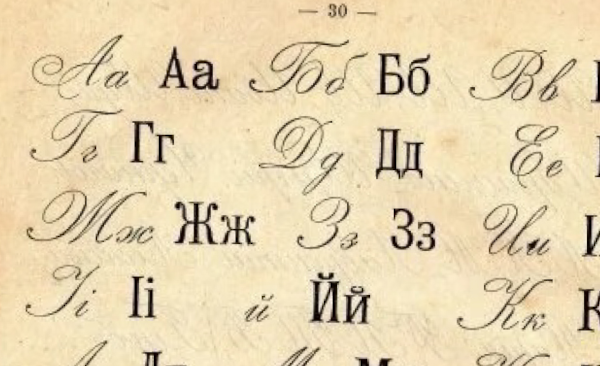 — 30 —
Аа Аа Бб Бб Вв
Гг Гг Дд Дд Ее
Жж Жж Зз Зз Ии И
Іі Іі й Йй Кк К